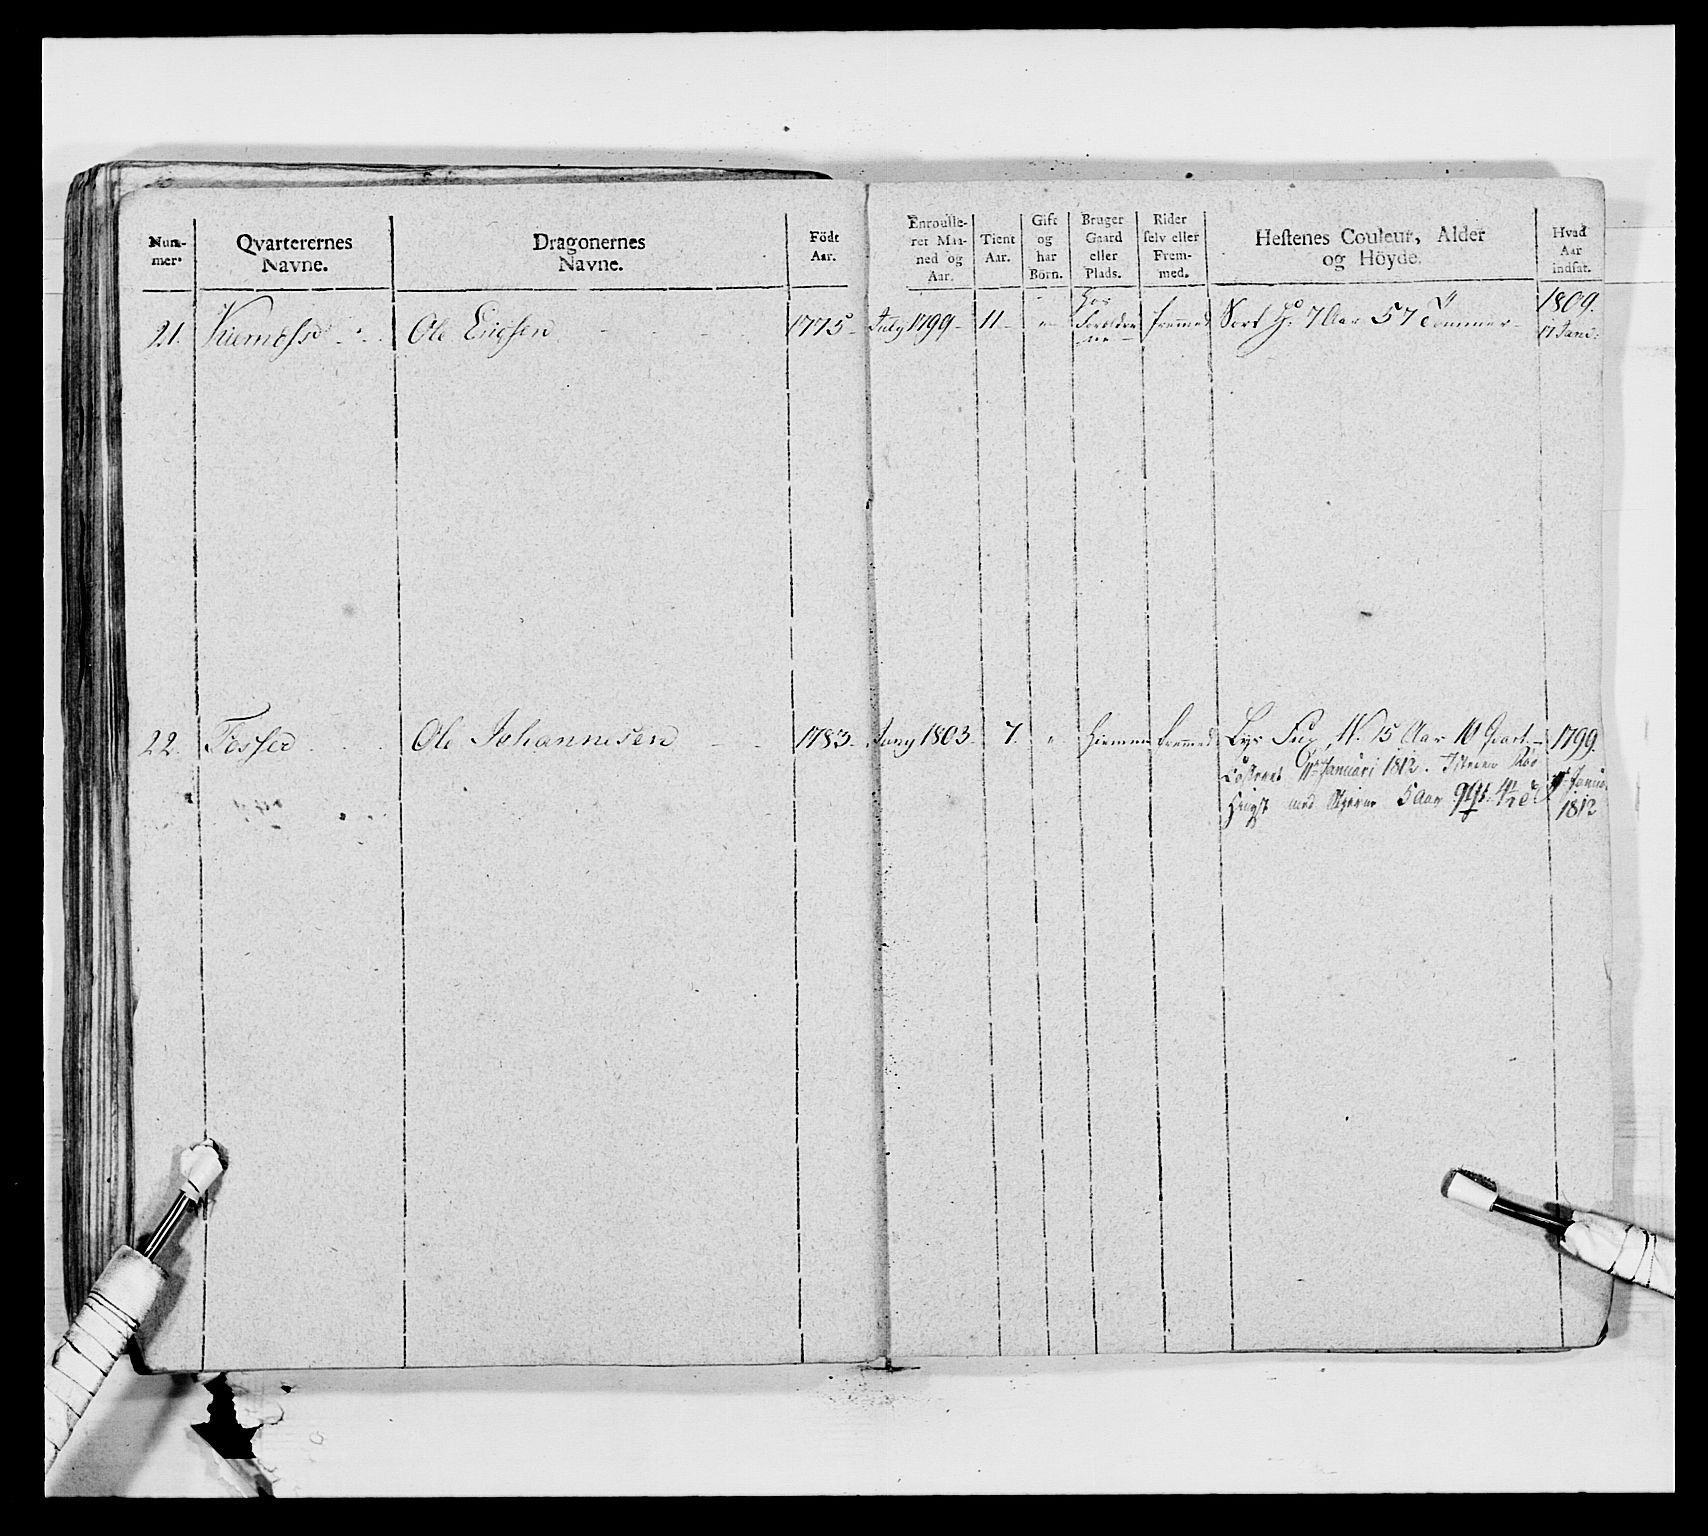 Num-
mer.
Qvarterernes
Navne.
Dragonernes
Navne.
Födt
Aar.
Enroulle-
ret Maa-
ned og
Aar.
Tient
Aar.
Gift
og
har
Börn.
Bruger
Gaard
eller
Plads.
Rider
selv eller
Frem-
med.
Hestenes Couleur, Alder
og Höyde.
Hvad
Aar
indsat.
21. Ole Ericsen 1775 July 1799 11 " hos
Forældre
ne fremmed Sort H. 7 Aar 57 Tommer 1809.
17 Janu:
22. Fosser Ole Johannesen 1783 Juny 1803 7 " Hiemme fremmed Lys Fux W. 15 Aar 10 Qvart 1799.
11te Januari 1812.
Hingst med Stierne 5 Aar 9 Januar
1812